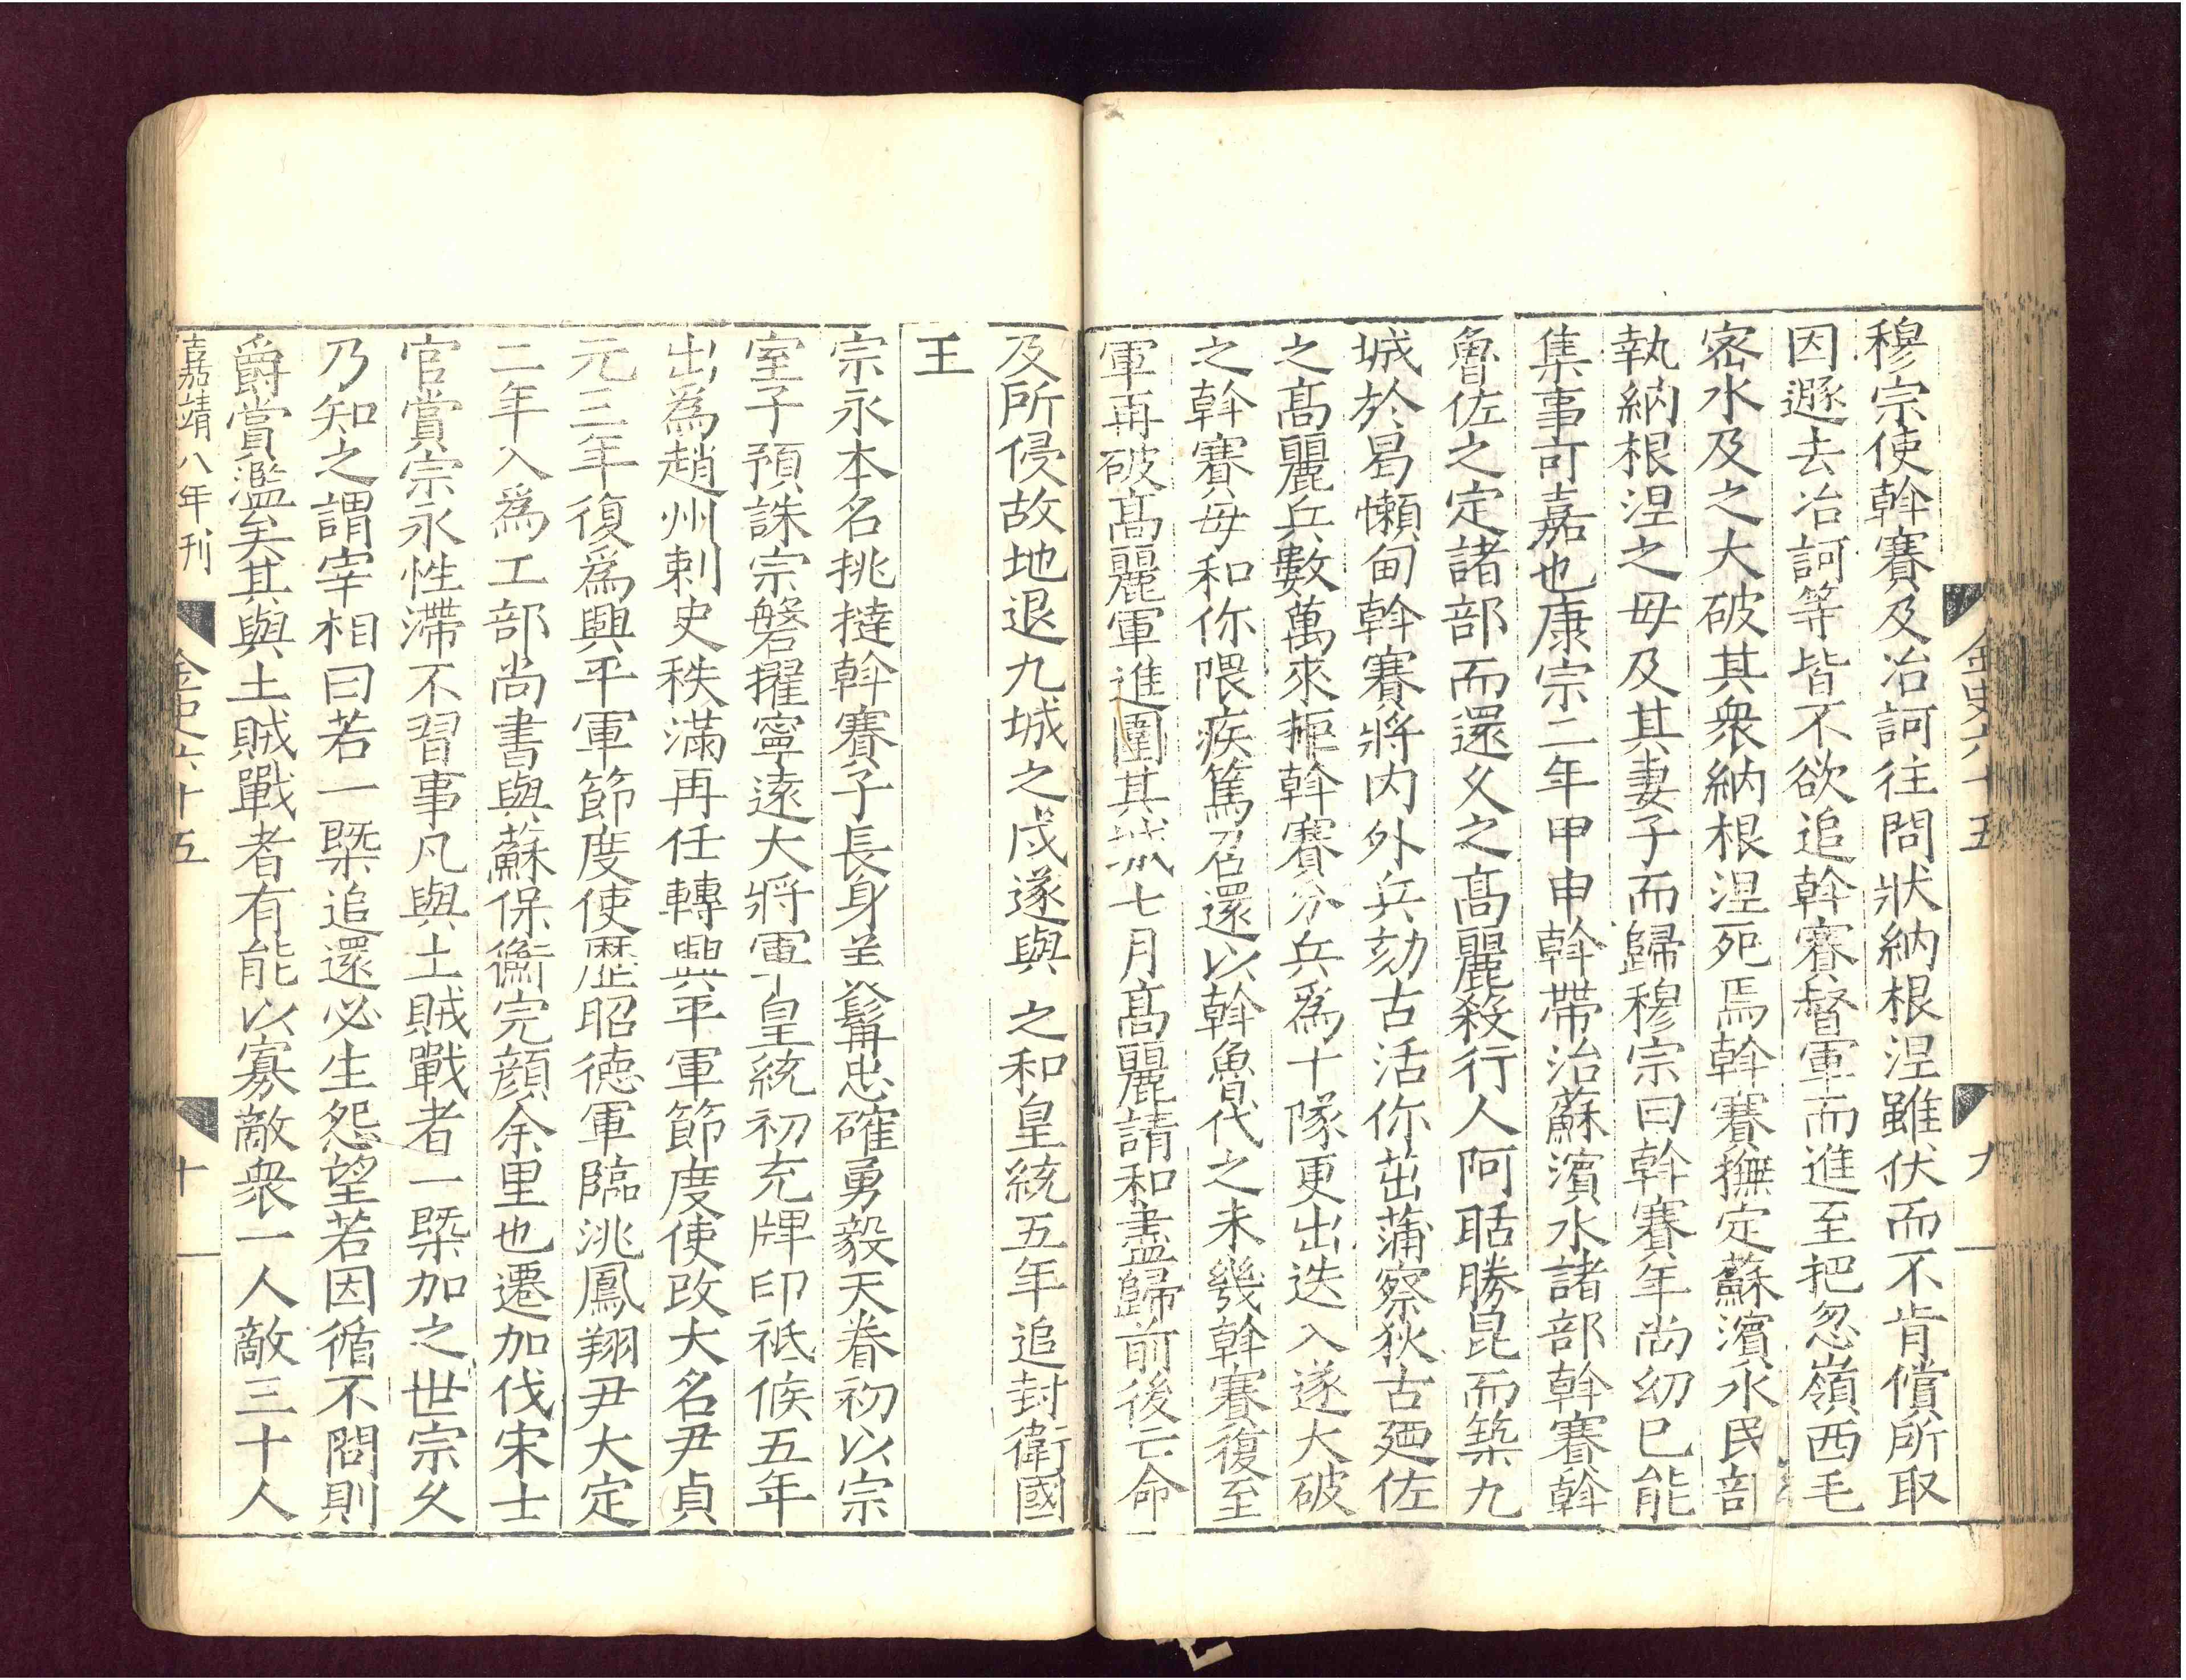 金史六十五
九
穆宗使斡賽及冶訶往問狀納根涅雖伏而不肯償所取
因遯去冶訶等皆不欲追斡賽督軍而進至把忽嶺西毛
密水及之大破其衆納根涅死焉斡賽撫定蘇濱水民部
執納根涅之母及其妻子而歸穆宗曰斡賽年尚幼已能
集事可嘉也康宗二年甲申斡帶治蘇濱水諸部斡賽斡
魯佐之定諸部而還久之高麗殺行人阿聒勝昆而築九
城於曷懶甸斡賽將內外兵劾古活你茁蒲察狄古廼佐
之高麗兵數萬來拒斡賽分兵爲十隊更出迭入遂大破
之斡賽母和你隈疾篤召還以斡魯代之未幾斡賽復至
軍再破高麗軍進圍其城七月高麗請和盡歸前後亡命
及所侵故地退九城之戍遂與 之和皇統五年追封衛國
王
宗永本名挑撻斡賽子長身美髯忠確勇毅天眷初以宗
室子預誅宗磐擢寧遠大將軍皇統初充牌印祗候五年
出爲趙州刺史秩滿再任轉興平軍節度使改大名尹貞
元三年復爲興平軍節度使歷昭德軍臨洮鳳翔尹大定
二年入爲工部尚書與蘇保衡完顏余里也遷加伐宋士
官賞宗永性滯不習事凡與土賊戰者一槩加之世宗久
乃知之謂宰相曰若一槩追還必生怨望若因循不問則
爵賞濫矣其與土賊戰者有能以寡敵衆一人敵三十人
嘉靖八年刊
金史六十五
十